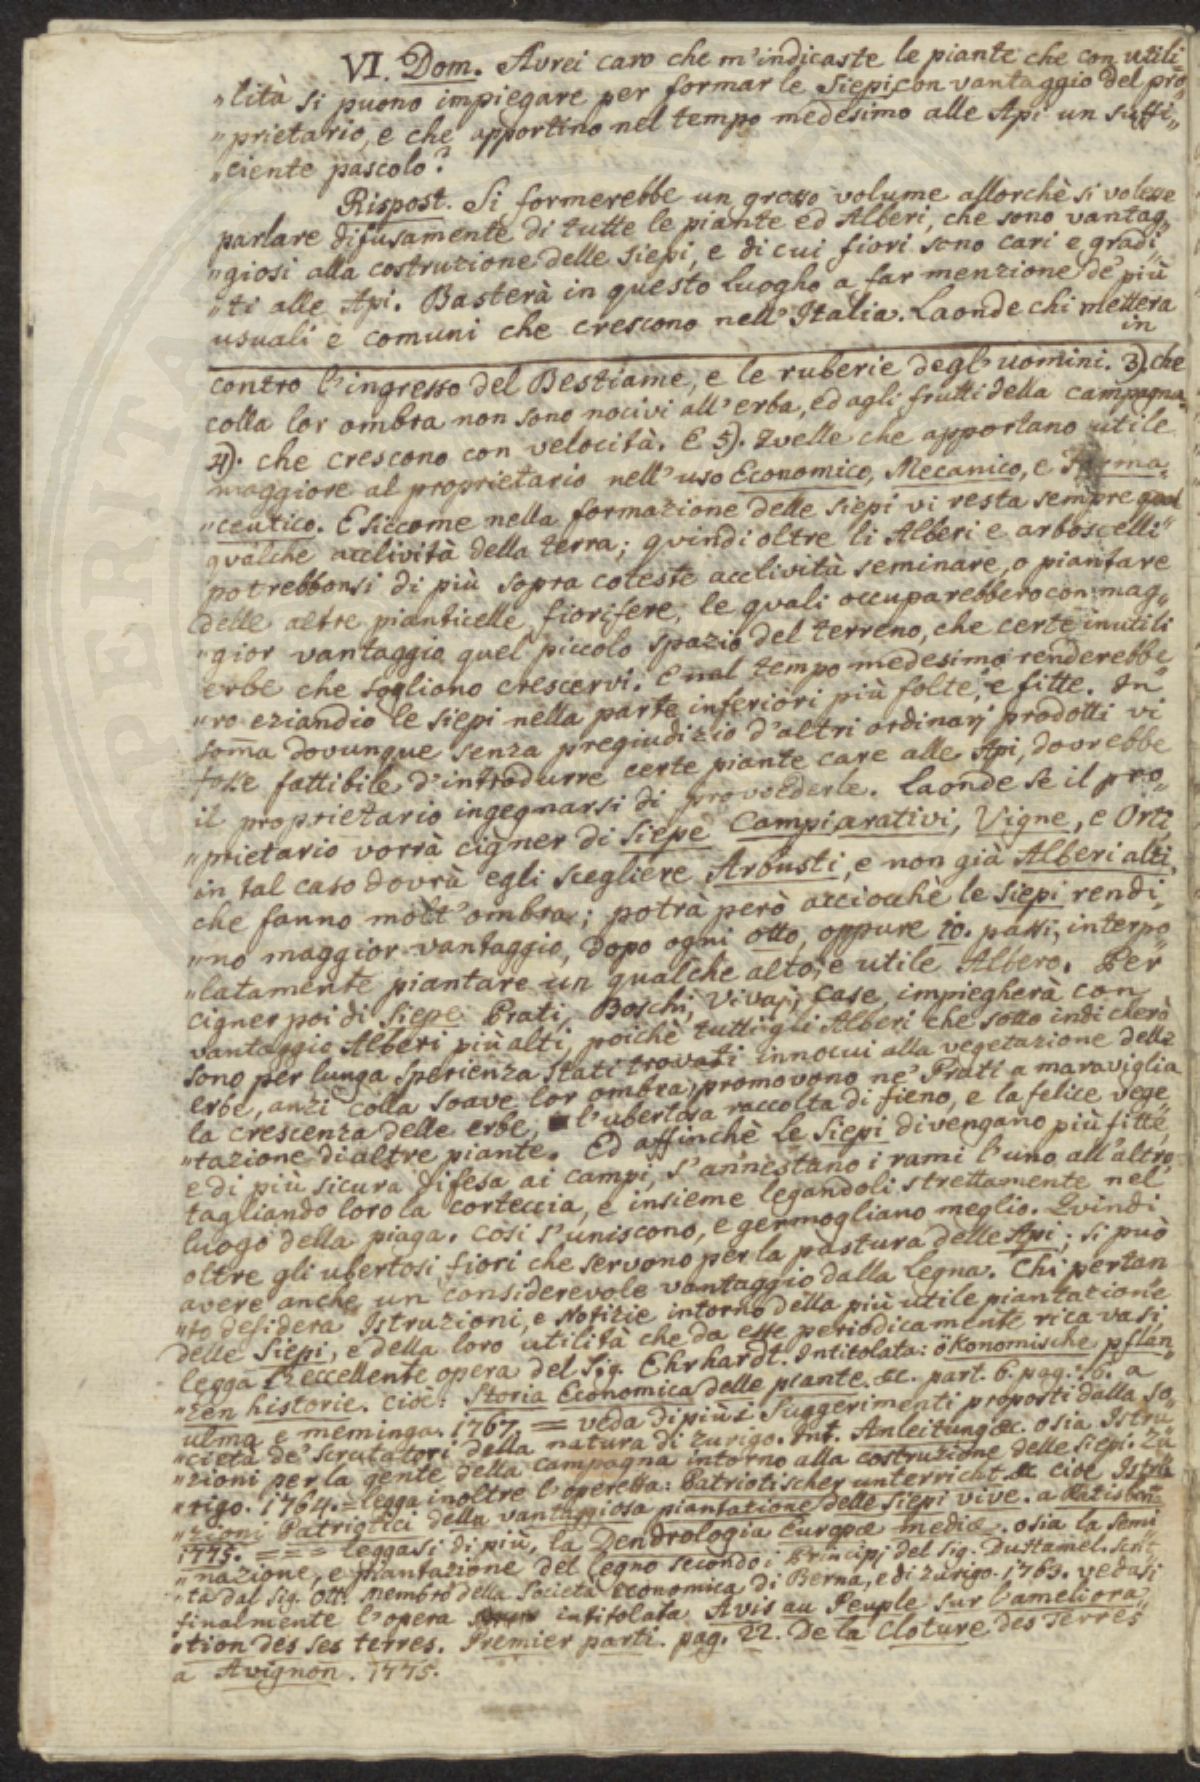 VI. Dom. Avrei caro che m'indicaste le piante che con utili=
"lità si puono impiegare per formar le Siepi con vantaggio del pro"
"prietario, e che apportino nel tempo medesimo alle Api un suffi"
"ciente pascolo?
Rispost. Si formerebbe un grosso volume allorchè si volesse
parlare difusamente di tutte le piante ed Alberi, che sono vantag"
"giosi alla costruzione delle siepi, e di cui fiori sono cari e gradi"
"ti alle Api. Basterà in questo luogho a far menzione de' più
usuali e comuni che crescono nell'Italia. Laonde chi mettera
in
contro l'ingresso del Bestiame, e le ruberie degl'uomini. 3). che
colla lor ombra non sono nocivi all'erba, ed agli frutti della campagna.
4). che crescono con velocità. E 5). Quelle che apportano utile
maggiore al proprietario nell'uso Economico, Mecanico, e Farma=
"ceutico. E siccome nella formazione delle siepi vi resta sempre
qualche acclività della terra; quindi oltre li Alberi e arboscelli
potrebbonsi di più sopra coteste acclività seminare, o piantare
delle altre pianticelle fiorifere, le quali occuparebbero con mag"
"gior vantaggio quel piccolo spazio del terreno, che certe inutili
erbe che sogliono crescervi. E nal tempo medesimo renderebbe"
"ro eziandio le siepi nella parte inferiori più folte, e fitte. In
som̄a dovunque senza pregiudizio d'altri ordinarj prodotti vi
fosse fattibile d'introdurre certe piante care alle Api, dovrebbe
il proprietario ingegnarsi di provederle. Laonde se il pro"
"prietario vorrà cigner di Siepe Campi arativi, Vigne, e Orti,
in tal caso dovrà egli scegliere Arbusti, e non già Alberi alti,
che fanno molt'ombra; potrà però acciocchè le siepi rendi"
"no maggior vantaggio, dopo ogni otto, oppure 10. passi, interpo"
"latamente piantare un qualche alto, e utile Albero. Per
cigner poi di Siepe Prati, Boschi, Vivaj, Case, impiegherà con
vantaggio Alberi più alti, poichè tutti gli Alberi che sotto indicherò
sono per lunga sperienza stati trovati innocui alla vegetazione delle
erbe, anzi colla soave lor ombra, promovono ne' Prati a maraviglia
la crescenza delle erbe, l'ubertosa raccolta di fieno, e la felice vege"
"tazione di altre piante. Ed affinchè le Siepi divengano più fitte,
e di più sicura difesa ai campi, s'annestano i rami l'uno all'altro,
tagliando loro la corteccia, e insieme legandoli strettamente nel
luogo della piaga. Così s'uniscono, e germogliano meglio. Quindi
oltre gli ubertosi fiori che servono per la pastura delle Api; si può
avere anche un considerevole vantaggio dalla Legna. Chi pertan"
"to desidera Istruzioni, e Notizie intorno della più utile piantazione
delle Siepi, e della loro utilità che da esse periodicamente ricavasi,
legga l'eccellente opera del Sig. Ehrhardt. Intitolata: ökonomische pflan"
"zen historie. cioè: Storia Economica delle piante. &c. part. 6. pag. 16. a
ulma e meminga. 1767. = veda di più i Suggerimenti proposti dalla so"
"cietà de' Scrutatori della natura di Zurigo. Int. Anleitung &c. osia Istru"
"zioni per la gente della campagna intorno alla costruzione delle siepi. Zu"
"rigo. 1764. = legga inoltre l'operetta: Patriotischer unterricht &c cioè Istru"
"zioni Patriotici della vantaggiosa piantatione delle siepi vive. a Ratisbona
1775. = = = leggasi di più, la Dendrologia Europæ mediæ. osia la semi"
"nazione, e piantazione del legno secondo i Principj del Sig. Duhamel. scrit"
"ta dal Sig. Ott. Membro della Societa economica di Berna, e di Zurigo. 1763. vedasi
finalmente l'opera intitolata Avis au Peuple sur l'ameliora"
"tion des ses terres. Premier parti. pag. 22. De la Cloture des Terres
a Avignon. 1775.